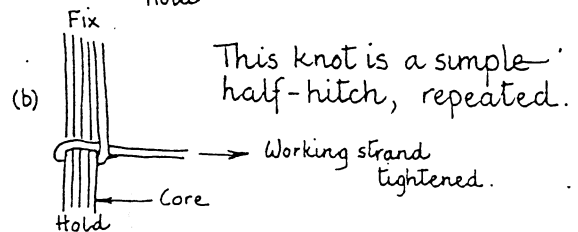 Fix
This knot is a simple
(b)
half-hitch, repeated.
Working strand
tightened.
Core
Hold